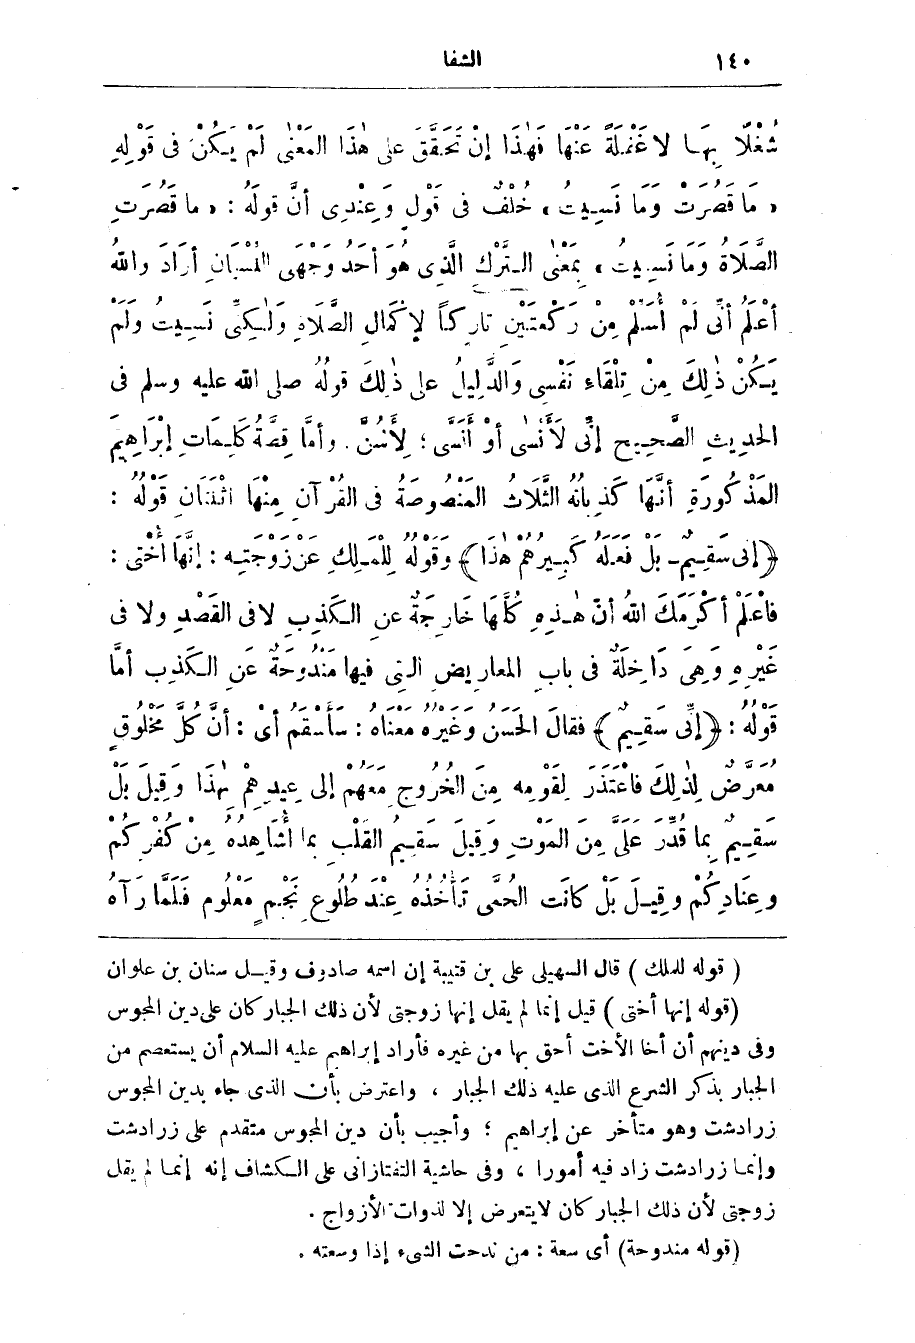 ١٤٠ الشفا
شُغْلًا بِهَا لا غَفْلَةً عَنْهَا فَهٰذَا إنْ تَحَقَّقَ على هٰذَا المَعْنٰى لَمْ يَكُنْ فى قَوْلِهِ
« مَا قَصُرَتْ وَمَا نَسِيتُ » خُلْفٌ فى قَوْلٍ وَعِنْدِى أنَّ قولَهُ : « ما قَصُرَتِ
الصَّلَاةُ وَمَا نَسِيتُ » بِمَعْنٰى التَّرْكِ الَّذِى هُوَ أحَدُ وَجْهَىِ النِّسْيَانِ أرَادَ واللهُ
أعْلَمُ أنِّى لَمْ أُسَلِّمْ مِنْ رَكْعَتَيْنِ تاركاً لإكْمَالِ الصَّلَاةِ وَلٰكِنِّى نَسِيتُ ولَمْ
يَكُنْ ذٰلِكَ مِنْ تِلْقَاءِ نَفْسِى وَالدَّلِيلُ على ذٰلِكَ قولُهُ صلى الله عليه وسلم فى
الحديثِ الصَّحِيحِ إنِّى لَأَنْسٰى أوْ أُنَسَّى ؛ لِأَسُنَّ . وأمَّا قِصَّةُ كَلِمَاتِ إبْرَاهِيمَ
المَذْكُورَةِ أنَّهَا كَذِبَاتُهُ الثَّلَاثُ المَنْصُوصَةُ فى القُرْآنِ مِنْهَا اثْنَتَانِ قَوْلُهُ :
﴿إنِّى سَقِيمٌ - بَلْ فَعَلَهُ كَبِيرُهُمْ هٰذَا﴾ وَقَوْلُهُ لِلْمَلِكِ عَنْ زَوْجَتِهِ : إنَّهَا أُخْتِى :
فاعْلَمْ أكْرَمَكَ اللهُ أنّ هٰذِهِ كُلَّهَا خَارِجَةٌ عنِ الكَذِبِ لا فى القَصْدِ ولا فى
غَيْرِهِ وَهِىَ دَاخِلَةٌ فى بابِ المعاريضِ التِى فيها مَنْدُوحَةٌ عَنِ الكَذِبِ أمَّا
قَوْلُهُ : ﴿إنِّى سَقِيمٌ﴾ فقالَ الحَسَنُ وغَيْرُهُ مَعْنَاهُ : سَأَسْقَمُ أىْ : أنَّ كُلَّ مَخْلُوقٍ
مُعَرَّضٌ لِذٰلِكَ فاعْتَذَرَ لِقَوْمِهِ مِنَ الخُرُوجِ مَعَهُمْ إلى عِيدِهِمْ بِهٰذَا وَقِيلَ بَلْ
سَقِيمٌ بِما قُدِّرَ عَلَىَّ مِنَ المَوْتِ وَقِيلَ سَقِيمُ القَلْبِ بما أُشَاهِدُهُ مِنْ كُفْرِكُمْ
وعِنَادِكُمْ وقِيلَ بَلْ كانَتِ الحُمَّى تَأْخُذُهُ عِنْدَ طُلُوعِ نَجْمٍ مَعْلُومٍ فَلَمَّا رَآهُ
( قوله للملك ) قال السهيلى على بن قتيبة إن اسمه صادوف وقيل سنان بن علوان
(قوله إنها أختى ) قيل إنما لم يقل إنها زوجتى لأن ذلك الجبار كان على دين المجوس
وفى دينهم أن أخا الأخت أحق بها من غيره فأراد إبراهيم عليه السلام أن يستعصم من
الجبار بذكر الشرع الذى عليه ذلك الجبار ، واعترض بأن الذى جاء بدين المجوس
زرادشت وهو متأخر عن إبراهيم ؛ وأجيب بأن دين المجوس متقدم على زرادشت
وإنما زرادشت زاد فيه أمورا ، وفى حاشية التفتازانى على الكشاف إنه إنما لم يقل
زوجتى لأن ذلك الجبار كان لايتعرض إلا لذوات الأزواج .
(قوله مندوحة) أى سعة : من ندحت الشىء إذا وسعته .